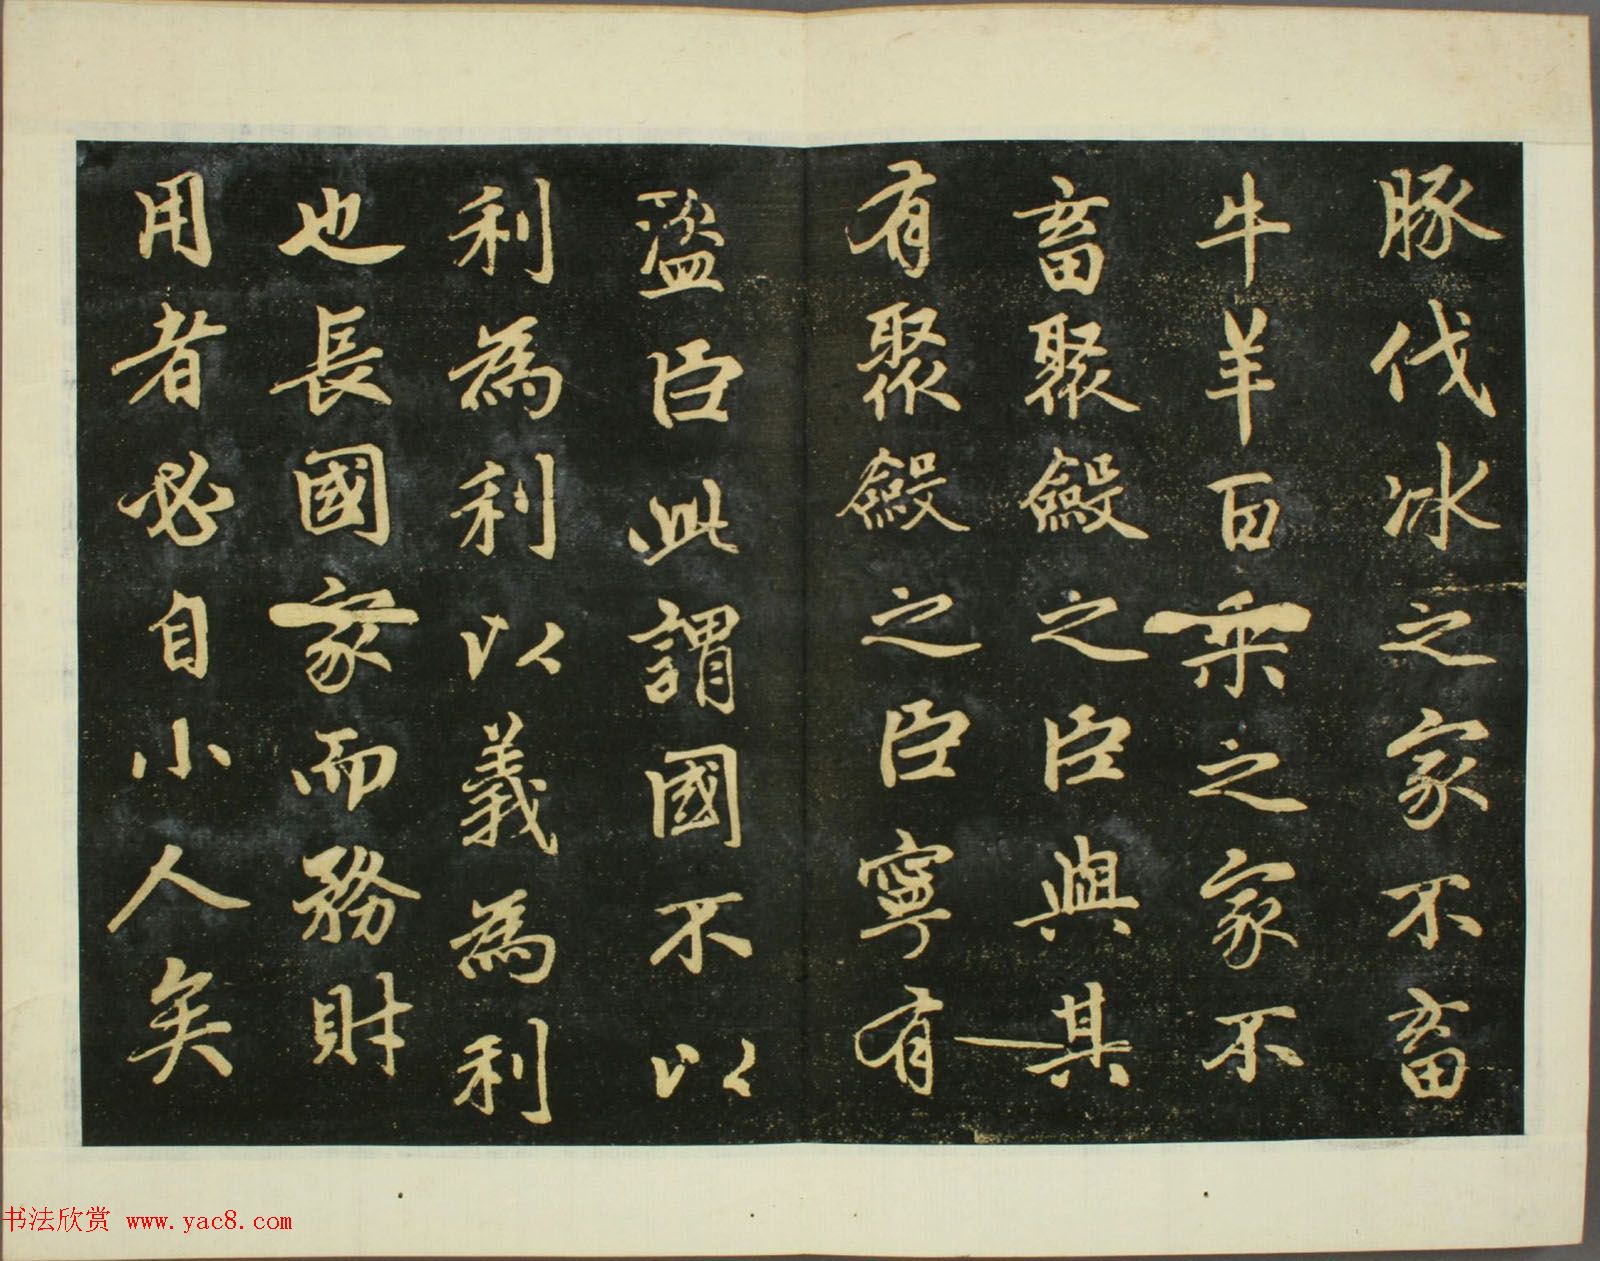 豚伐冰之家不畜
牛羊百乘之家不
畜聚斂之臣與其
有聚斂之臣寧有
盜臣此謂國不以
利為利以義為利
也長國家而務財
用者必自小人矣
书法欣赏 www.yac8.com